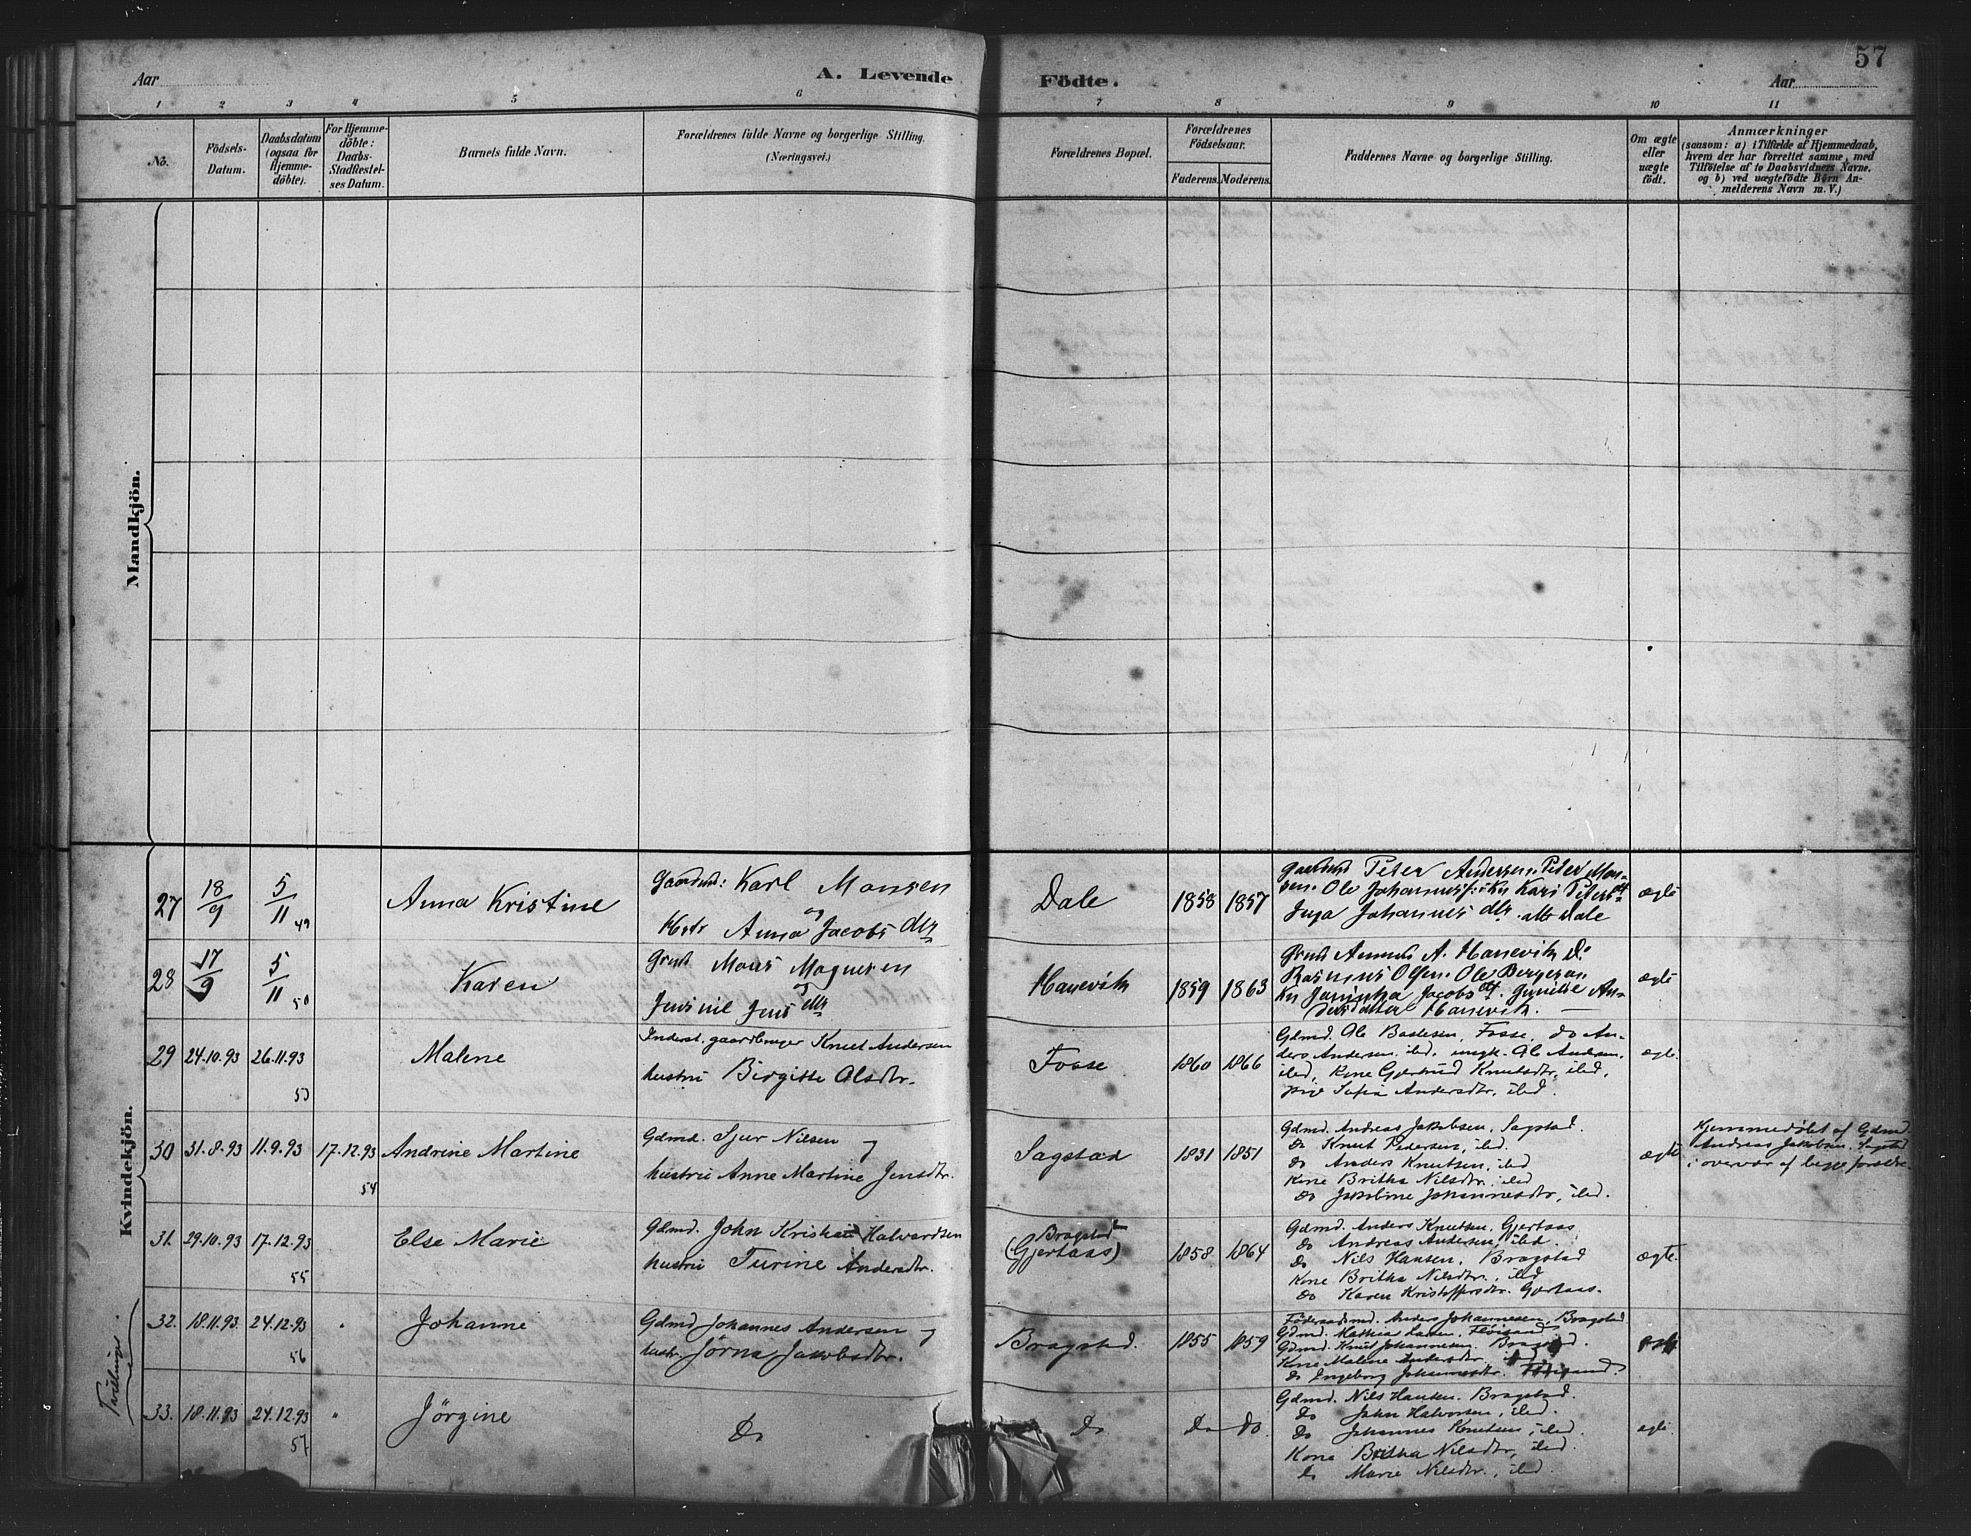 57
Aar
A. Levende
Födte.
Aar
1 2 3 4 5 6 7 8 9 10 11
No.
Födsels-
Datum.
Daabsdatum
(ogsaa for
Hjemme-
döbte).
For Hjemme-
döbte:
Daabs-
Stadfæstel-
ses Datum.
Barnets fulde Navn.
Forældrenes fulde Navne og borgerlige Stilling.
(Næringsvei.)
Forældrenes Bopæl.
Forældrenes
Födselsaar.
Faderens. Moderens.
Faddernes Navne og borgerlige Stilling.
Om ægte
eller
uægte
födt.
Anmærkninger
(saasom: a) i Tilfælde af Hjemmedaab,
hvem der har forrettet samme, med
Tilföielse af to Daabsvidners Navne,
og b) ved uægtefödte Börn An-
melderens Navn m. V.)
Mandkjön.
Kvindekjön.
27 18/9 5/11 49
Anna Kristine
Karl Monsen
og
Anna Jacobs dtr
Dale
1858 1857
Peter Andersen. Peter Mon-
sen. Ole Johannes Kari Peters
Inga Johannes dtr. alle Dale
ægte
28 17/9 5/11 50
Karen
Mons Mogensen
og
Jens dtr
Hanevik
1859 1863
A. Hanevik
Rasmus Olsen. Ole Bergesen
Jacobs An-
dersdatter Hanevik.
ægte
29 24.10.93 26.11.93
53
Malene
Inderst. gaardbruger Knut Andersen
hustru Birgitte Olsdtr.
Fosse
1860 1866
Gdmd. Ole Fosse, do An-
ders Andersen ibd, ungk. Ole Andersen,
ibd, Kone Gjertrud Knutsdtr, ibd,
pige Andersdtr, ibd.
ægte.
30 31.8.93 11.9.93 17.12.93
54
Andrine Martine
Gdmd. Sjur Nilsen og
hustru Anne Martine Jensdtr.
Sagstad
1831 1851
Gdmd. Andreas Jakobsen, Sagstad.
do Knut Pedersen, ibd.
do Anders Knutsen, ibd
Kone Britha Nilsdtr, ibd
do Jakobine Johannesdtr, ibd.
ægte
Hjemmedøbt af Gdmd.
Andreas Jakobsen, Sagstad
i overvær af begge forældre
31. 29.10.93 17.12.93
55
Else Marie
Gdmd. John Kristian Halvardsen
hustru Turine Andersdtr.
Bragstad
(Gjertaas)
1858 1864
Gdmd. Anders Knutsen, Gjertaas
do Andreas Andersen, ibd.
do Nils Hansen, Bragstad
Kone Britha Nilsdtr., ibd
do Karen Kristoffersdtr. Gjertaas.
ægte.
Tvillinger
32. 18.11.93. 24.12.93
56
Johanne
Gdmd Johannes Andersen og
hustr. Jørna Jakobsdtr.
Bragstad.
1855 1859
Føderaadsmd. Anders Johannesen, Bragstad
Gdmd. Mathias Larsen,
Gdmd. Knut Johannesen. Bragstad.
Kone Malene Andersdtr. ibd
do Ingeborg Johannesdtr.
ægte
33. 18.11.93 24.12.93 "
57
Jørgine
Do
Do
Do Do.
Gdmd. Nils Hansen. Bragstad.
Do John Halvorsen, ibd.
Do Johannes Knutsen, ibd.
Kone Britha Nilsdtr, ibd.
do Marie Nilsdtr., ibd.
ægte.